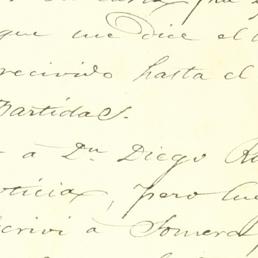 que me dice el
recivido hasta el
Partidas.
à Dn Diego
oticia, pero
scrivi à Somera